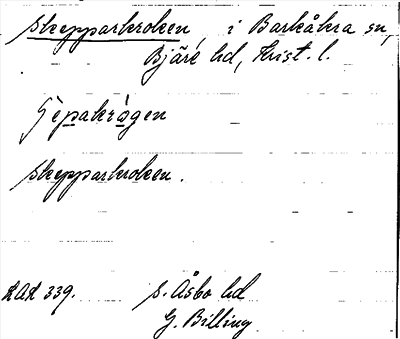 Skepparkroken, i Barkåkra sn,
Bjäre hd, Krist. l.
Skepparkroken.
LAL 339. S. Åsbo hd
G. Billing